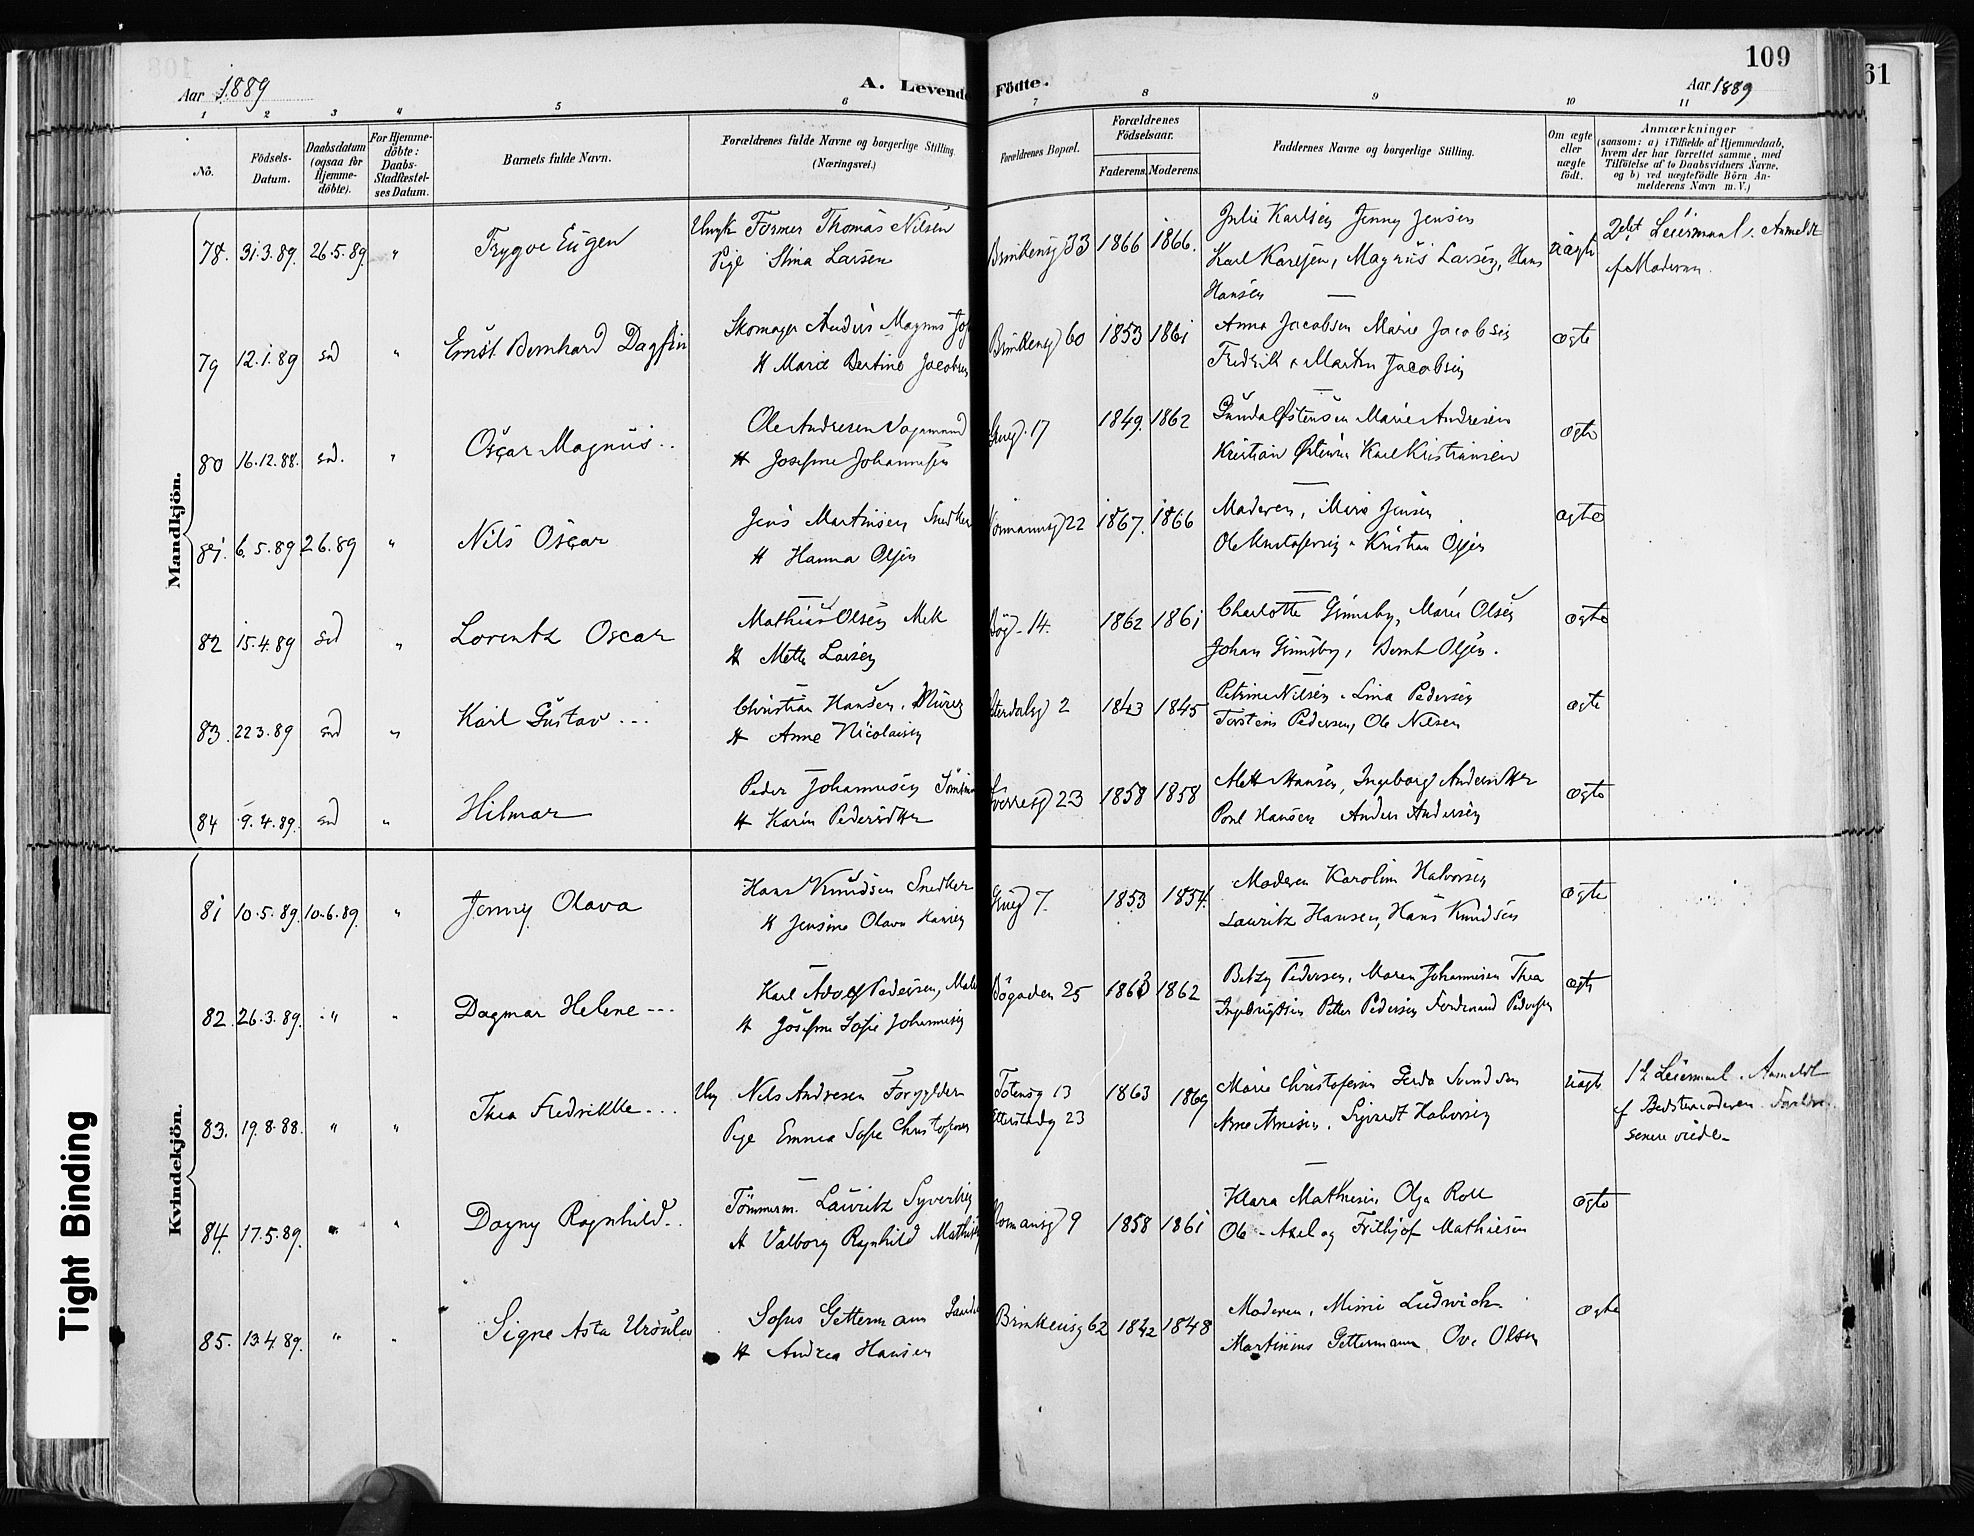 109
61
Aar 1889
A. Levende Födte.
Aar 1889
1 2 3 4 5 6 7 8 9 10 11
No.
Födsels-Datum.
Daabsdatum (ogsaa for Hjemme-döbte).
For Hjemme-döbte: Daabs-Stadfæstel-ses Datum.
Barnets fulde Navn.
Forældrenes fulde Navne og borgerlige Stilling.
(Næringsvei.)
Forældrenes Bopæl.
Forældrenes Födselsaar.
Faderens. Moderens.
Faddernes Navne og borgerlige Stilling.
Om ægte eller uægte födt.
Anmærkninger
(saasom: a) i Tilfælde af Hjemmedaab,
hvem der har forrettet samme, med
Tilföielse af to Daabsvidners Navne,
og b) ved uægtefödte Börn An-
melderens Navn m. V.)
Mandkjön.
78. 31.3.89. 26.5.89. " Trygve Eugen
Ungk Former Thomas Nilsen
Pige Stina Larsen
Brinkensg 33 1866 1866.
Julie Karlsen Jenny Jensen
Karl Karlsen, Magnus Larsen, Hans
Hansen
uægte
2det Leiermaal. Anmeldt
af Moderen.
79 12.1.89 sd " Ernst Bernhard Dagfin
Skomager Anders Magnus
H Marie Bertine Jacobsen
Brinkensg 60 1853 1861
Anna Jacobsen Marie Jacobsen
Fredrik & Martin Jacobsen
ægte
80 16.12.88. sd. " Oscar Magnus
Ole Andresen Vognmand
H Josefine Johannesen
17 1849. 1862
Gunda Østensen Marie Andresen
Kristian Østensen Karl Kristiansen
ægte
81. 6.5.89 2 6.89 " Nils Oscar
Jens Martinsen Snedker
H Hanna Olsen
Normannsg 22 1867. 1866
Moderen, Mina Jensen
Ole Kristofersen Kristian Olsen
ægte
82 15.4.89 sd " Lorentz Oscar
Mathias Olsen Mek
H Mette Larsen
Bøg. 14. 1862 1861
Charlotte Grimsby, Marie Olsen
Johan Grimsby, Bernt Olsen.
ægte
83. 22 3.89 sd " Karl Gustav
Christian Hansen, Murer
H Anne Nicolaisen
2 1843 1845
Petrine Nilsen Lina Pedersen
Torstein Pedersen, Ole Nilsen
ægte
84 9.4.89. sd " Hilmar
Peder Johannesen
H Karin Pedersdtter
Sverresg 23 1858 1858
Mette Hansen, Ingeborg Andersdtter
Poul Hansen Anders Andersen
ægte
Kvindekjön.
81 10.5.89. 10.6.89. " Jenny Olava
Hans Knudsen Snedker
H Jensine Olava Hansen
7. 1853 1854.
Moderen Karoline Halvorsen
Lauritz Hansen, Hans Knudsen
ægte
82. 26.3.89. " " Dagmar Helene
Karl Adolf Pedersen,
H Josefine Sofie Johannesen
Bøgaden 25 1863 1862
Betzy Pedersen, Maren Johannesen Thea
Ingebrigtsen Petter Pedersen Ferdinand Pedersen
ægte
83. 19.8.88. " " Thea Fredrikke
Ung Nils Andresen Forgylder
Pige Emma Sofie Christofersen
Totensg 13
Etterstadg 23 1863 1869
Marie Christofersen Gerda Svendsen
Arne Arnesen, Sigvardt Halvorsen
uægte
1st Leiermaal. Anmeldt
af Bedstemoderen. Forældre
senere viede
84. 17.5.89. " " Dagny Ragnhild
Tömmerm. Lauritz Syvertsen
H Valborg Ragnhild Mathisen
9 1858 1861
Klara Mathiesen, Olga Roll
Ole Axel og Frithjof Mathiesen
ægte
85. 13.4.89. " " Signe Asta Ursula
Sofus Gettermann
H Andrea Hansen
Brinkensg 62 1842 1848
Moderen, Mimi Ludwich
Martinius Gettermann, Ove Olsen
ægte
Tight Binding